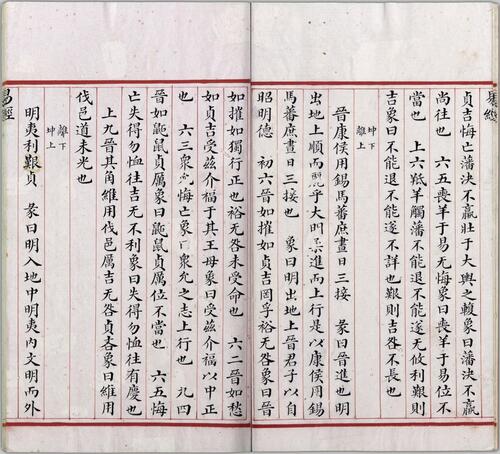 易經
貞吉悔亡藩決不羸壯于大輿之輹象曰藩決不羸
尚往也　六五喪羊于易无悔象曰喪羊于易位不
當也　上六羝羊觸藩不能退不能遂无攸利艱則
吉象曰不能退不能遂不詳也艱則吉咎不長也
坤下
離上
晉康侯用錫馬蕃庶晝日三接　彖曰晉進也明
出地上順而麗乎大明柔進而上行是以康侯用錫
馬蕃庶晝日三接也　象曰明出地上晉君子以自
昭明德　初六晉如摧如貞吉罔孚裕无咎象曰晉
如摧如獨行正也裕无咎未受命也　六二晉如愁
如貞吉受兹介福于其王母象曰受兹介福以中正
也　六三衆允悔亡象曰衆允之志上行也　九四
晉如鼫鼠貞厲象曰鼫鼠貞厲位不當也　六五悔
亡失得勿恤往吉无不利象曰失得勿恤往有慶也
上九晉其角維用伐邑厲吉无咎貞吝象曰維用
伐邑道未光也
離下
坤上
明夷利艱貞　彖曰明入地中明夷內文明而外
易經